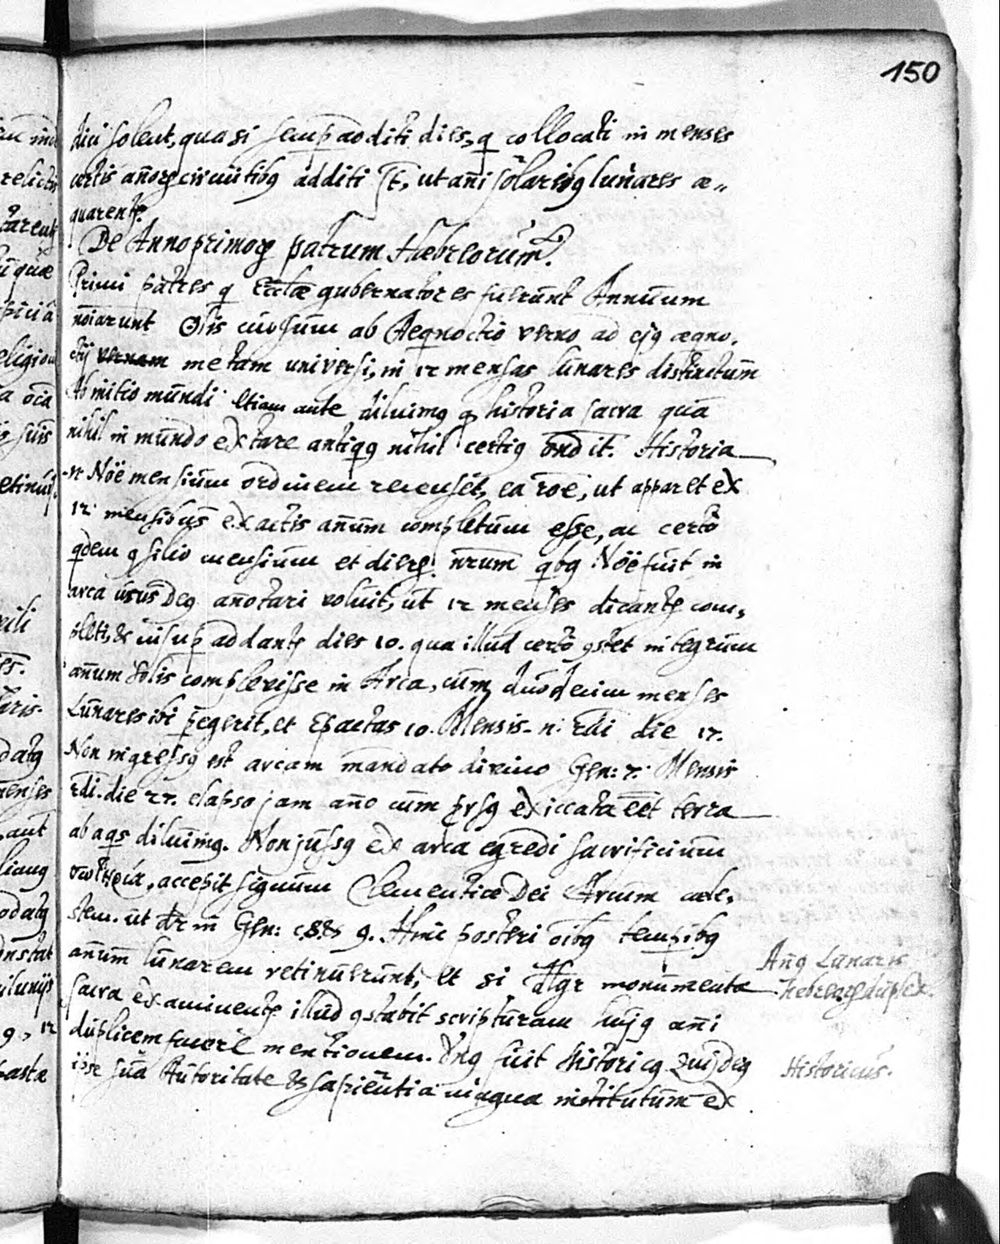 150
dici solent, quasi semp additi dies, q collocati in menses
certis anorq cricuitibq additi st, ut ani solaribq lunares æ„
quarentr.
De Anno primorq patrum Hæbreorum.
Primi patres q Eccltæ gubernatores fuerunt Annuum
noiarunt Solis cursum ab Aeqnoctio verno ad ejq ægno,
ctij vernam metam universi, in 12 menses lunares distinctum
Ab initio mundi etiam ante diluimq q historia sacra qua
nihil in mundo extare antiqq nihil certiq ondit. Historia
n Nöe mensium ordinem recenset, ea roe, ut apparet ex
12 mensibus exactis anum completum esse, ac certo
qdem qsilio mensium et dierq nrum qbq Nöe fuit in
arca usus Deq anotari voluit, ut 12 menses dicantr com,
pleti, & insup addantr dies 10. qua illud certo qstet integrum
anum Solis complevisse in Arca, cum duodecim menses
Lunares ibi pegerit, et Epactas 10. Mensis n. 2di die 17.
Non ingressq est arcam mandato divino Gen: 7. Mensis
2di die 27. elapso jam ano cum prsq exiccata eet terra
ab aqs diluimq. Non jussq ex arca egredi sacrificium
accepit signum Clementiæ Dei Arcum cæle,
stem. ut dr in Gen: 9. Hinc posteri oibq tempibq
anum lunarem retinuerunt, et si dlgr monumenta
sacra examinentr illud qstabit scripturam hujq ani
duplicem facere mentionem. Unq fuit Historicq quj deq
ipse sua Autoritate & sapientia institutum ex
Anq Lunaris
Hebreorq duplex.
Historicus.